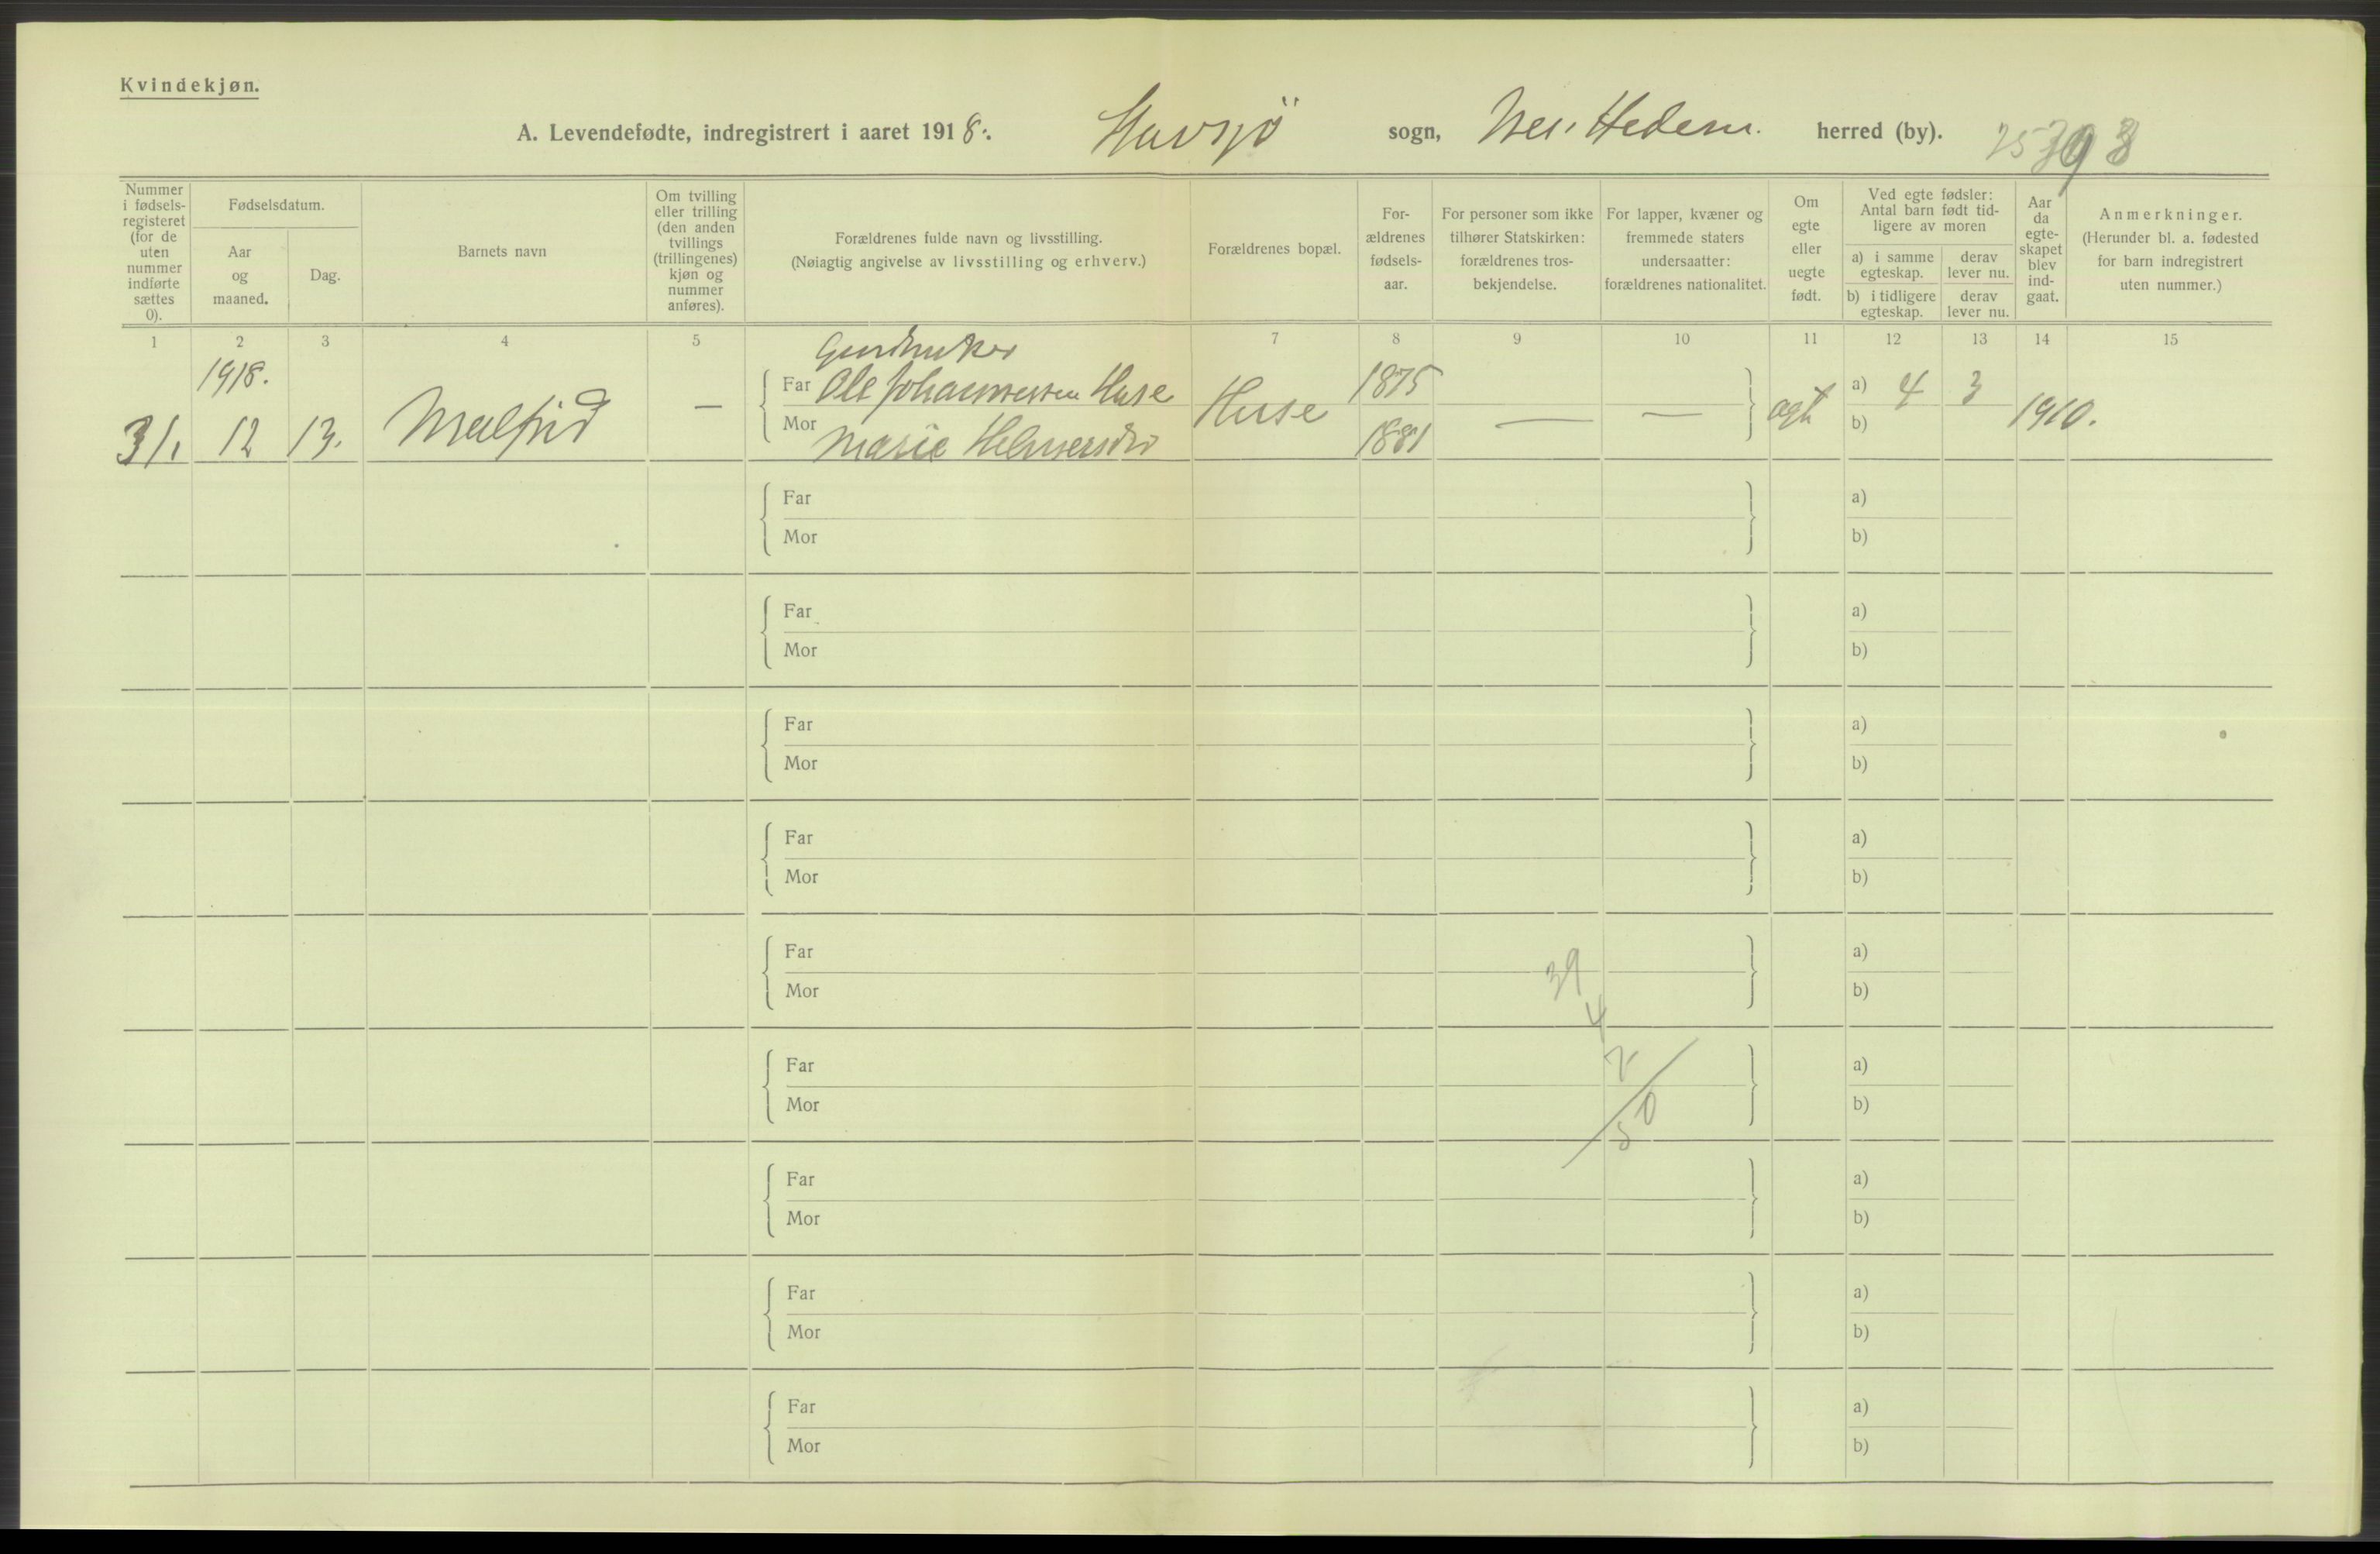 Kvindekjøn.
A. Levendefødte, indregistrert i aaret 1918. Havsjö sogn, herred (by).
Nummer i fødsels-registeret (for de uten nummer indførte sættes 0).
Fødselsdatum.
Aar og maaned.
Dag.
Barnets navn
Om tvilling eller trilling (den anden tvillings (trillingenes) kjøn og nummer anføres).
Forældrenes fulde navn og livsstilling.
(Nøiagtig angivelse av livsstilling og erhverv.)
Forældrenes bopæl.
For-ældrenes fødsels-aar.
For personer som ikke tilhører Statskirken: forældrenes tros-bekjendelse.
For lapper, kvæner og fremmede staters undersaatter: forældrenes nationalitet.
Om egte eller uegte født.
Ved egte fødsler: Antal barn født tid-ligere av moren
a) i samme egteskap.
derav lever nu.
b) i tidligere egteskap.
derav lever nu.
Aar da egte-skapet blev ind-gaat.
Anmerkninger.
(Herunder bl. a. fødested for barn indregistrert uten nummer.)
1 2 3 4 5 7 8 9 10 11 12 13 14 15
Gardbruker
1918.
Far Ole Johannessen Huse 1875 a) 4 3
31. 12 13. Malfrid — Huse — — egte 1910.
Mor Marie Helmersdtr 1881 b)
Far a)
Mor b)
Far a)
Mor b)
Far a)
Mor b)
Far a)
Mor b)
Far a)
39
Mor b)
4
Far a)
Mor b)
50
Far a)
Mor b)
Far a)
Mor b)
Far a)
Mor b)